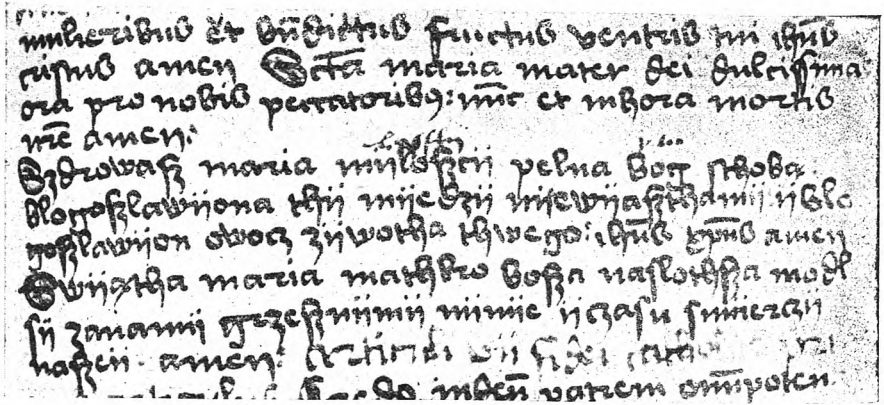 mulieribus et bn̄dictus fructus ventris tui ihūs
cristus amen Sctā maria mater dei dulcissima
ora pro nobis peccatoribꝰ: nūc et in hora mortis
nr̄e amen:
Szdrowaſz maria miiloſzcii pelna bog sthoba
blogoſzlawiiona thii miiedzii niewiiaſzthamii ii blo
goſzlawiion owocz ziiwotha thwego: ihūs xp̄us amen
Swiiątha maria mathko boſza naslothſza modl
sii zanamii grzeſzniimii niiniie ii czasu smierczii
naſzeii. amen: fidei
in deū patrem om̄ipoten